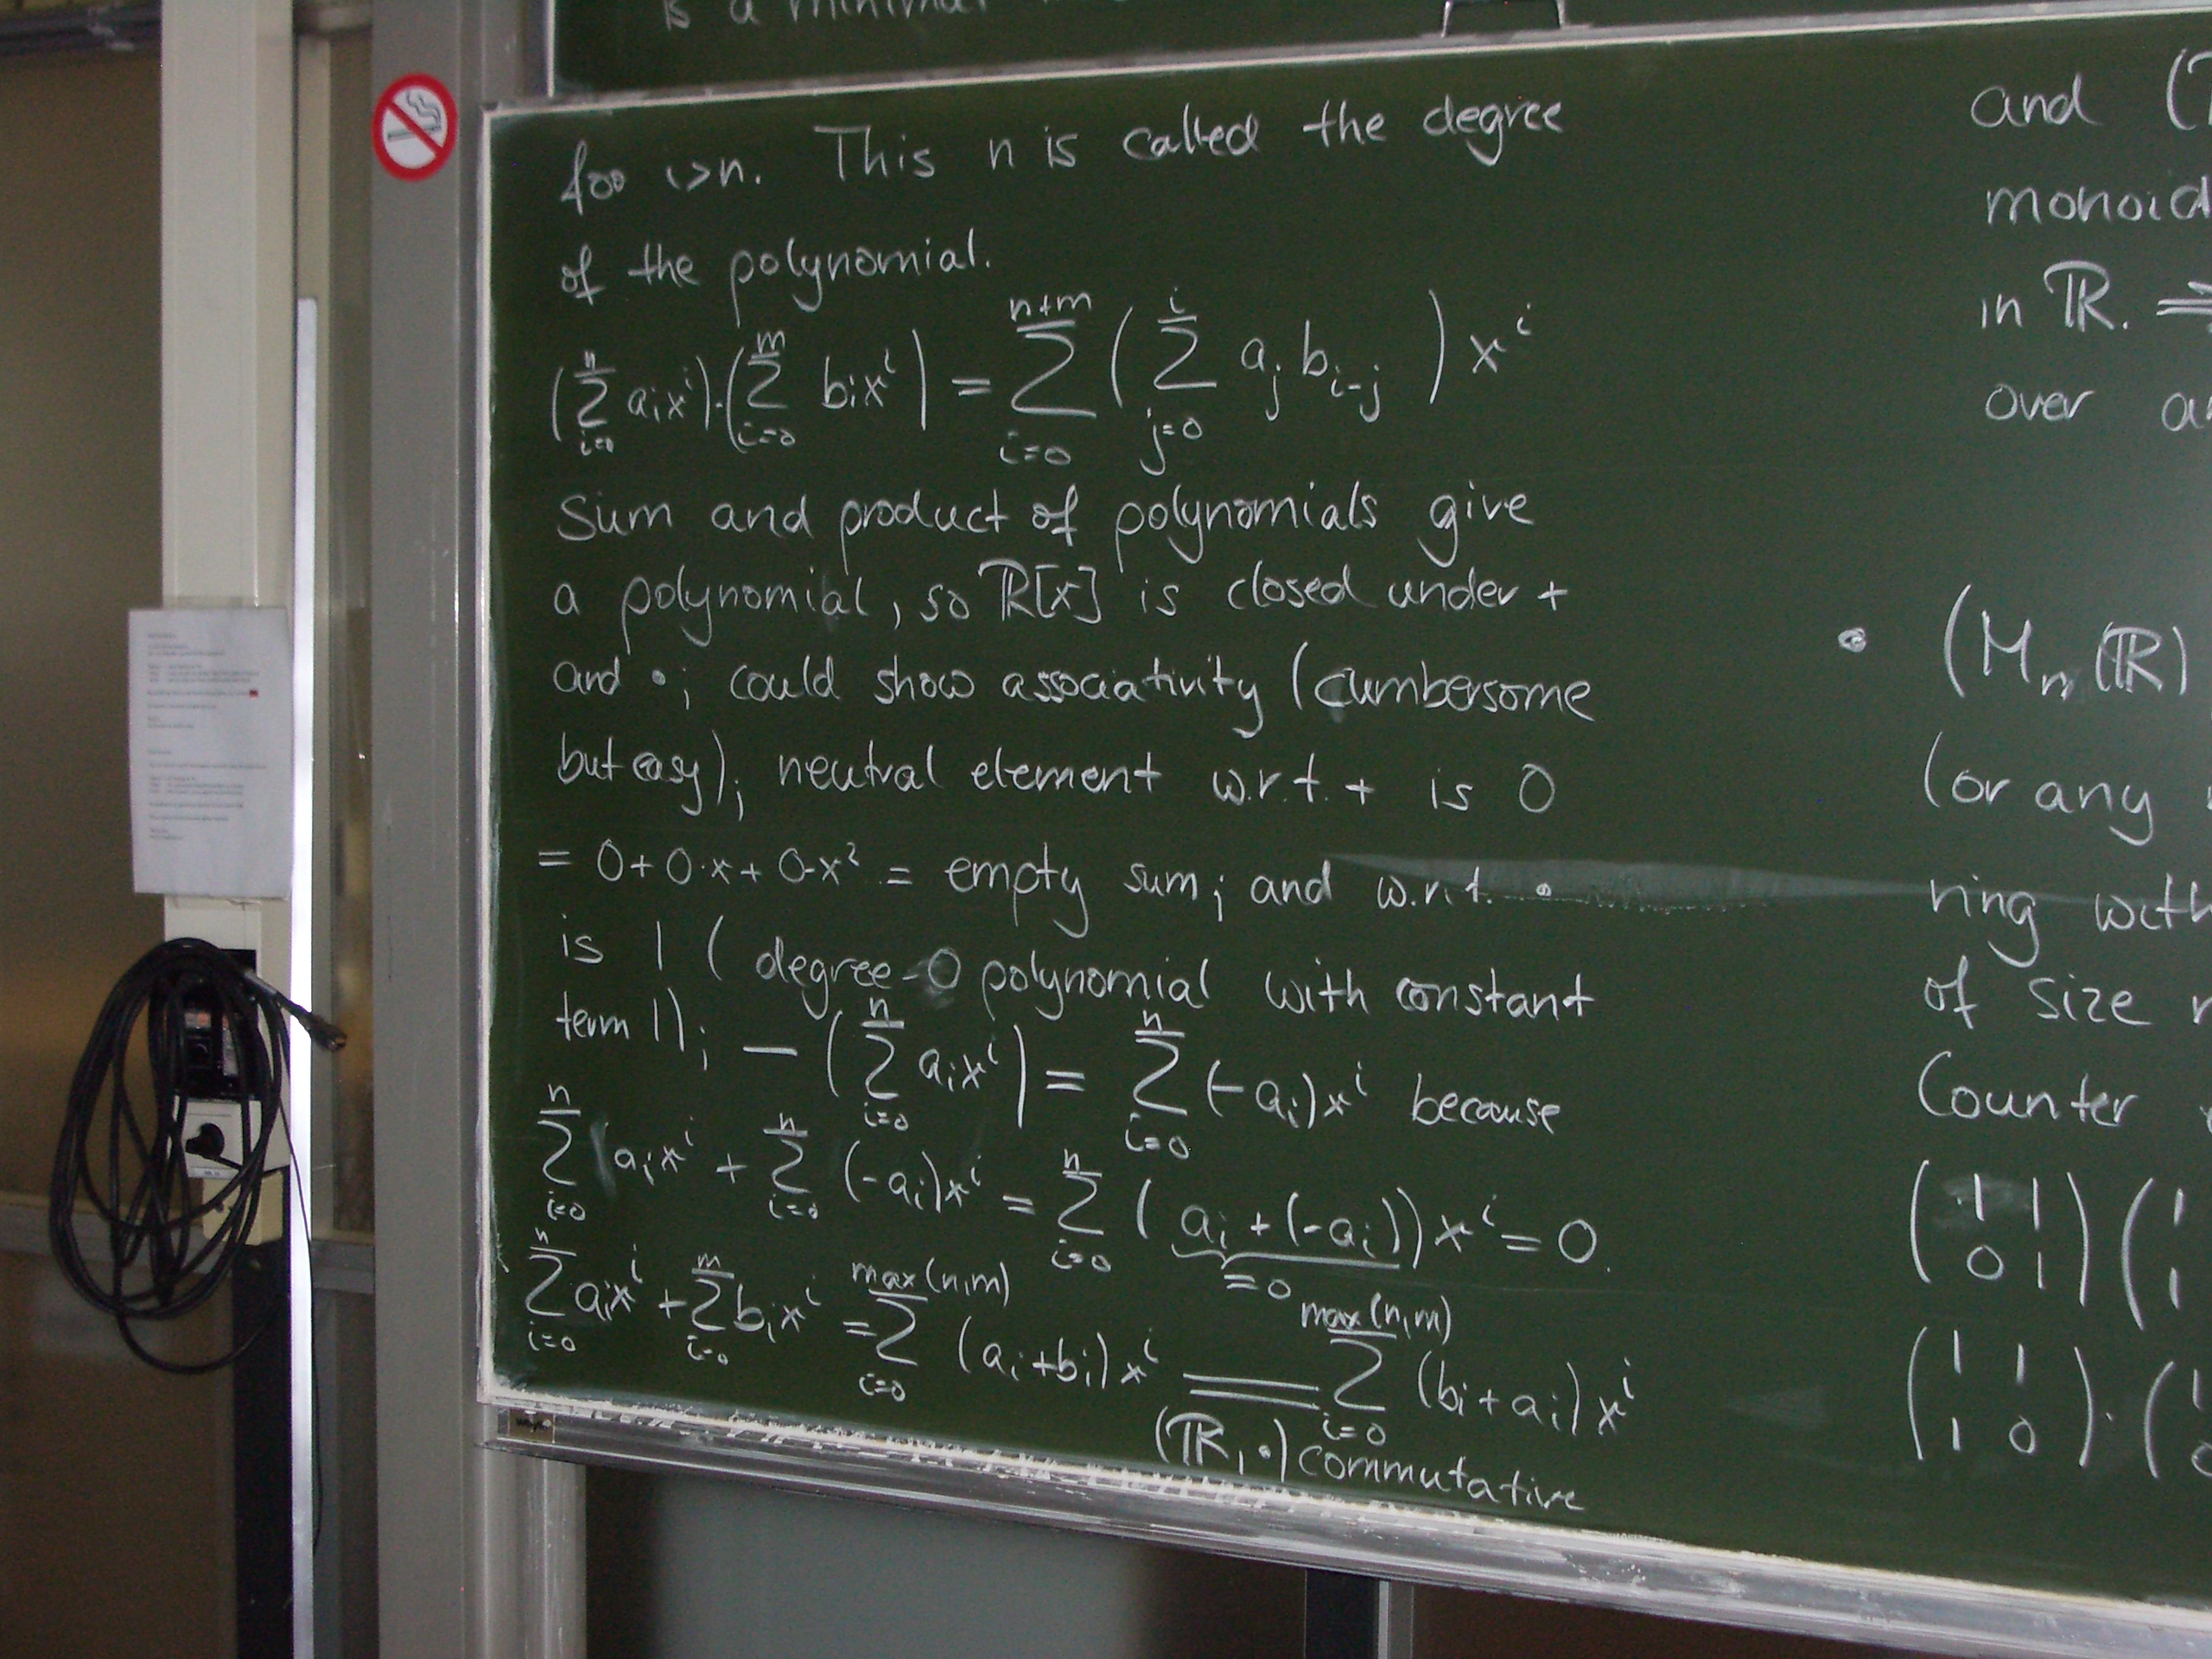 is a minimal
for i>n. This n is called the degree
of the polynomial.
(∑_{i=0}^{n} a_i x^i)·(∑_{i=0}^{m} b_i x^i) = ∑_{i=0}^{n+m} (∑_{j=0}^{i} a_j b_{i-j}) x^i
Sum and product of polynomials give
a polynomial, so ℝ[x] is closed under +
and •; could show associativity (cumbersome
but easy); neutral element w.r.t. + is 0
= 0+0·x+0·x² = empty sum; and w.r.t. •
is 1 (degree-0 polynomial with constant
term 1); −(∑_{i=0}^{n} a_i x^i) = ∑_{i=0}^{n} (-a_i)x^i because
∑_{i=0}^{n} a_i x^i + ∑_{i=0}^{n} (-a_i)x^i = ∑_{i=0}^{n} (a_i + (-a_i)) x^i = 0.
=0
∑_{i=0}^{n} a_i x^i + ∑_{i=0}^{m} b_i x^i = ∑_{i=0}^{max(n,m)} (a_i+b_i) x^i = ∑_{i=0}^{max(n,m)} (b_i+a_i) x^i
(ℝ,•) commutative
and (
monoid
in ℝ. ⇒
over
• (M_n(ℝ)
(or any
ring with
of size
Counter
(1 1) (1
(0 1) (1
(1 1) · (1
(1 0) (0